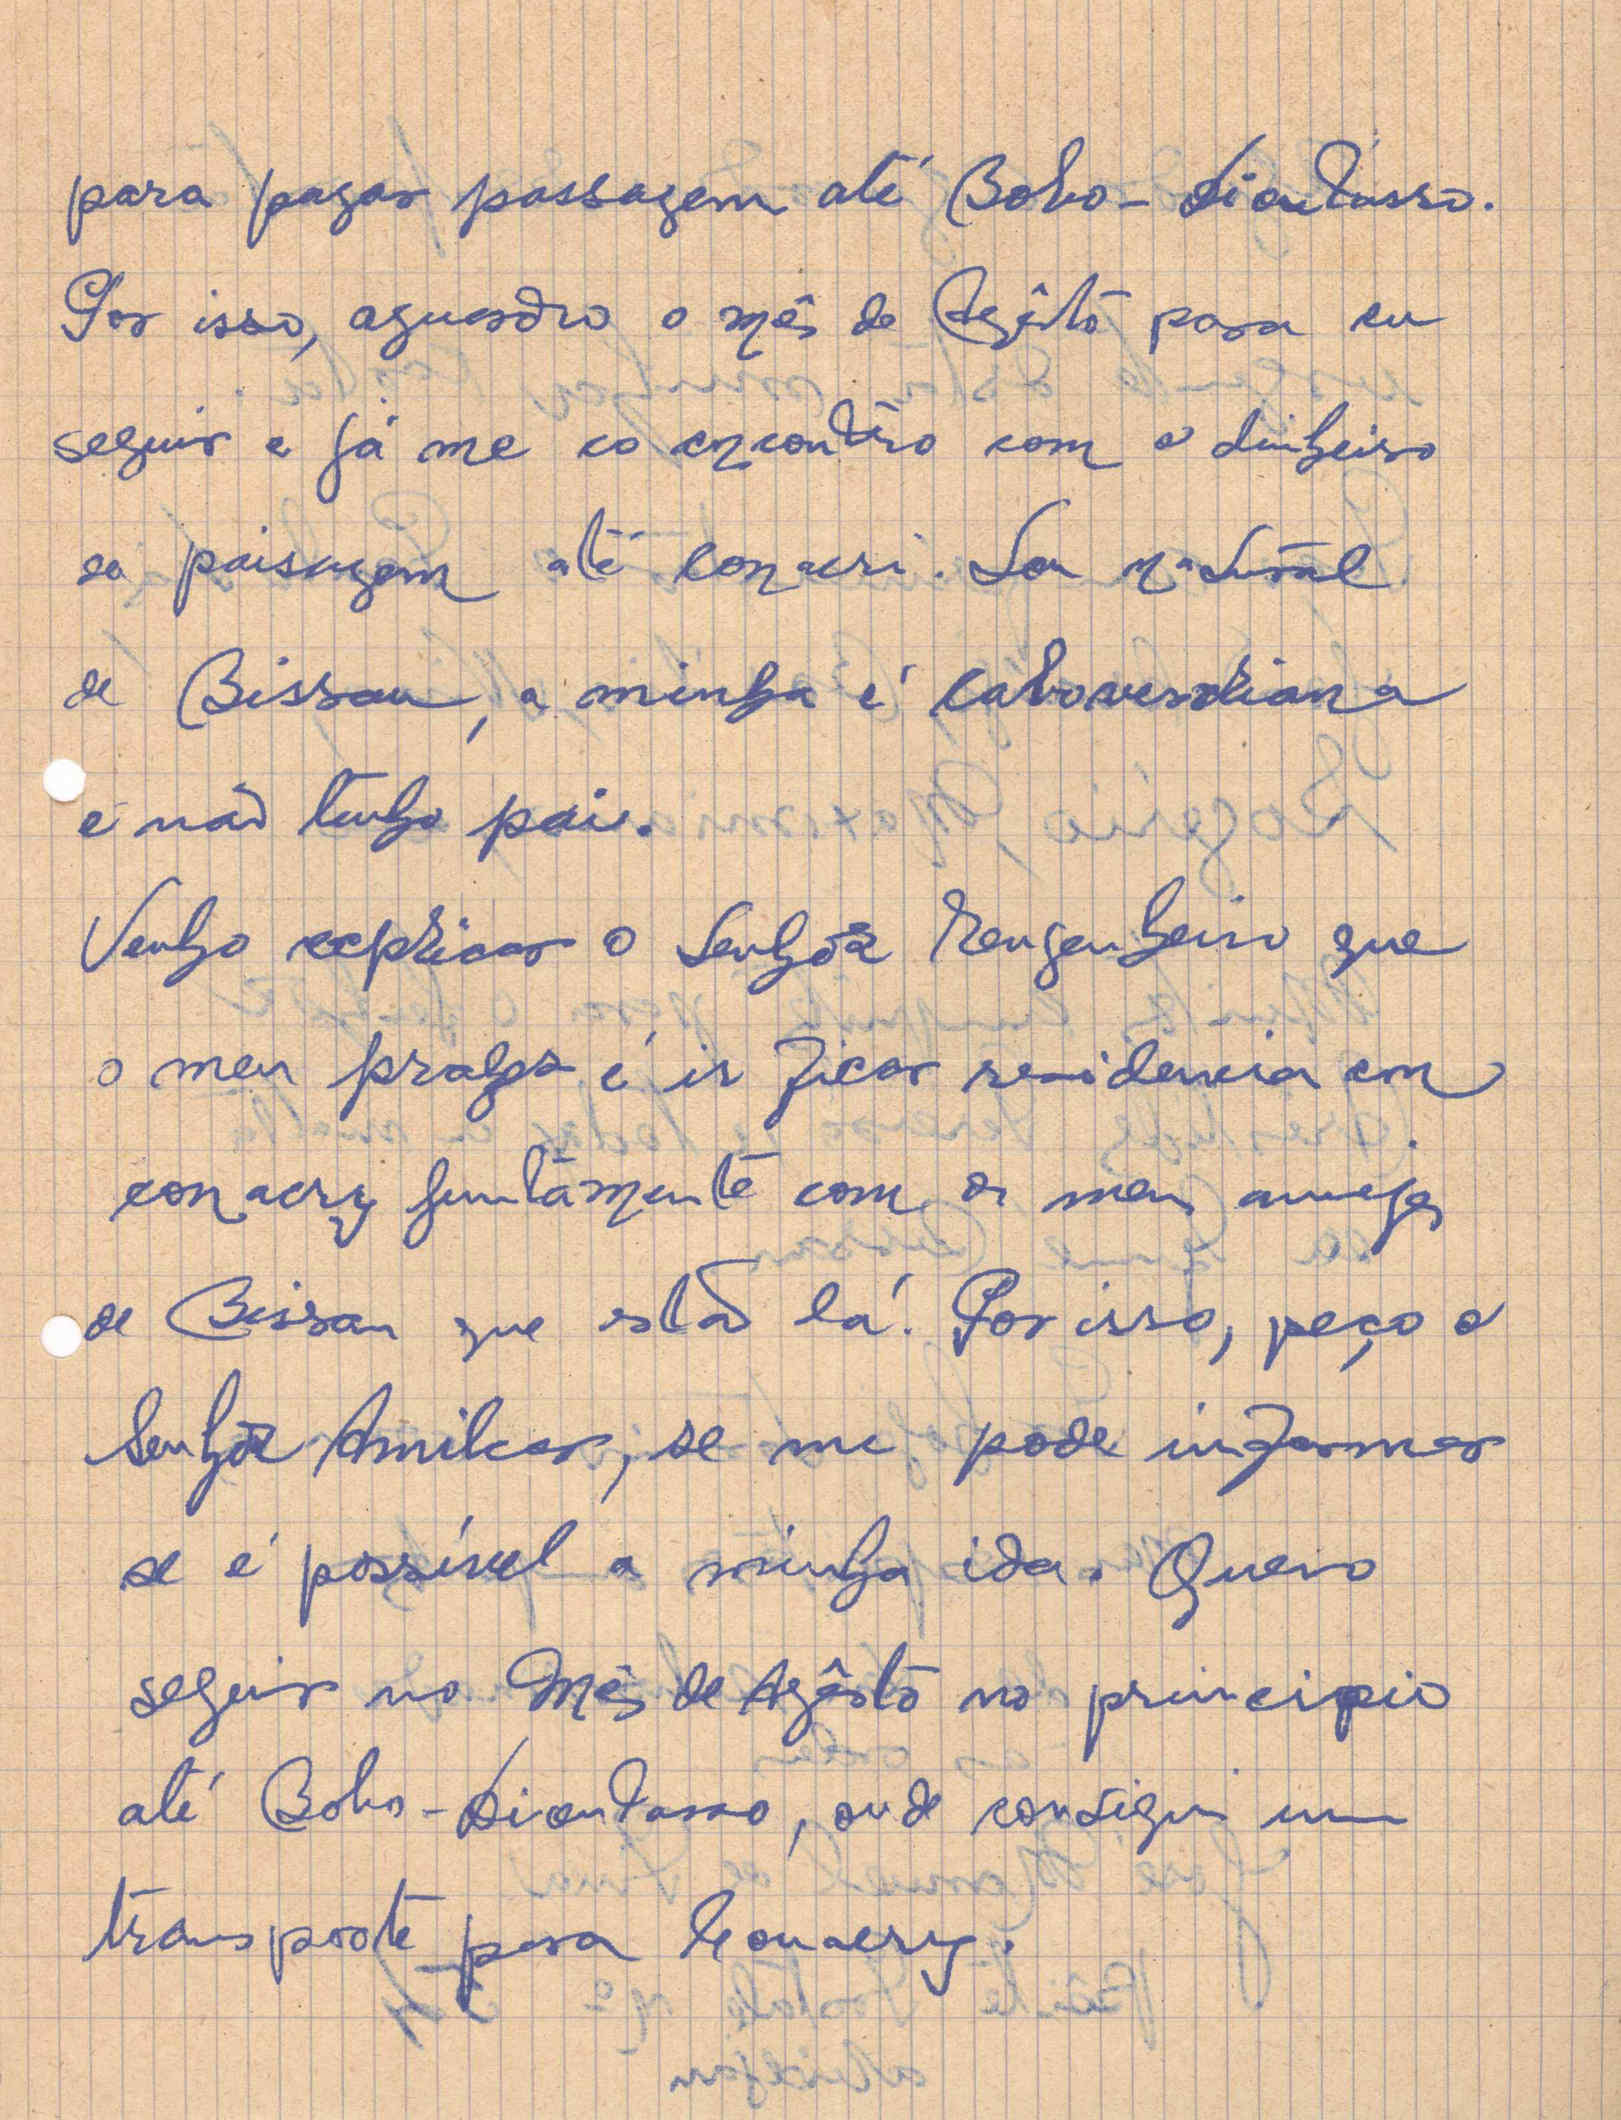 para pagar passagem até Bobo-dioulasso.
Por isso, aguardro o mês de Agôsto para eu
seguir e já me eo encontro com o dinheiro
da paisagem até Conacri. Sou natural
de Bissau, a minha é caboverdiana
e não tenho pai.
Venho explicar o Senhôr Eengenheiro que
o meu é ir ficar residencia em
conacry juntamente com os meus amigos
de Bissau que estão lá. Por isso, peço o
Senhôr Amilcar, se me pode informar
se é possível a minha ida. Quero
seguir no Mês de Agôsto no principio
até Bobo-Dioulasso, onde consigui um
transporte para Conacry.